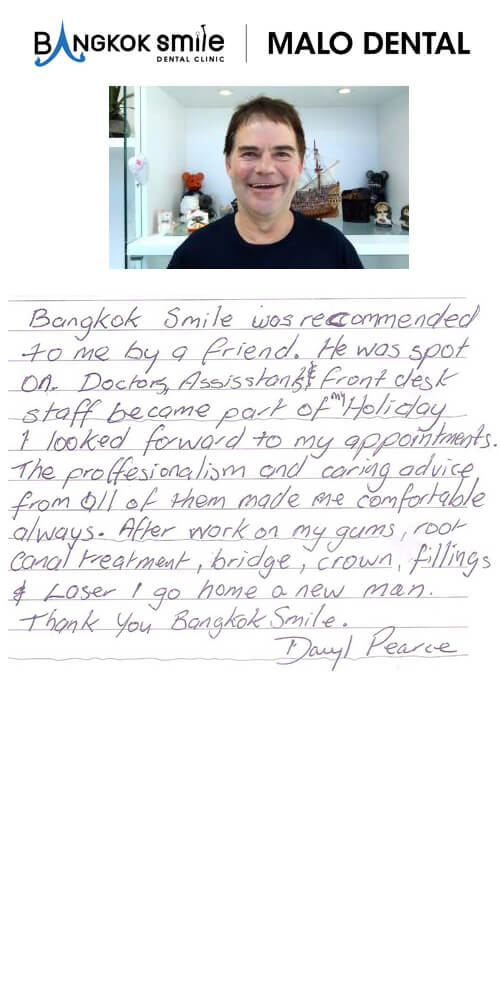 BANGKOK smile
DENTAL CLINIC
MALO DENTAL
Bangkok Smile was reccommended
to me by a friend. He was spot
on. Doctors, Assisstants & front desk
staff became part of my Holiday
I looked forward to my appointments.
The proffesionalism and caring advice
from all of them made me comfortable
always. After work on my gums, root
canal treatment, bridge, crown, fillings
& Laser I go home a new man.
Thank You Bangkok Smile.
Daryl Pearce